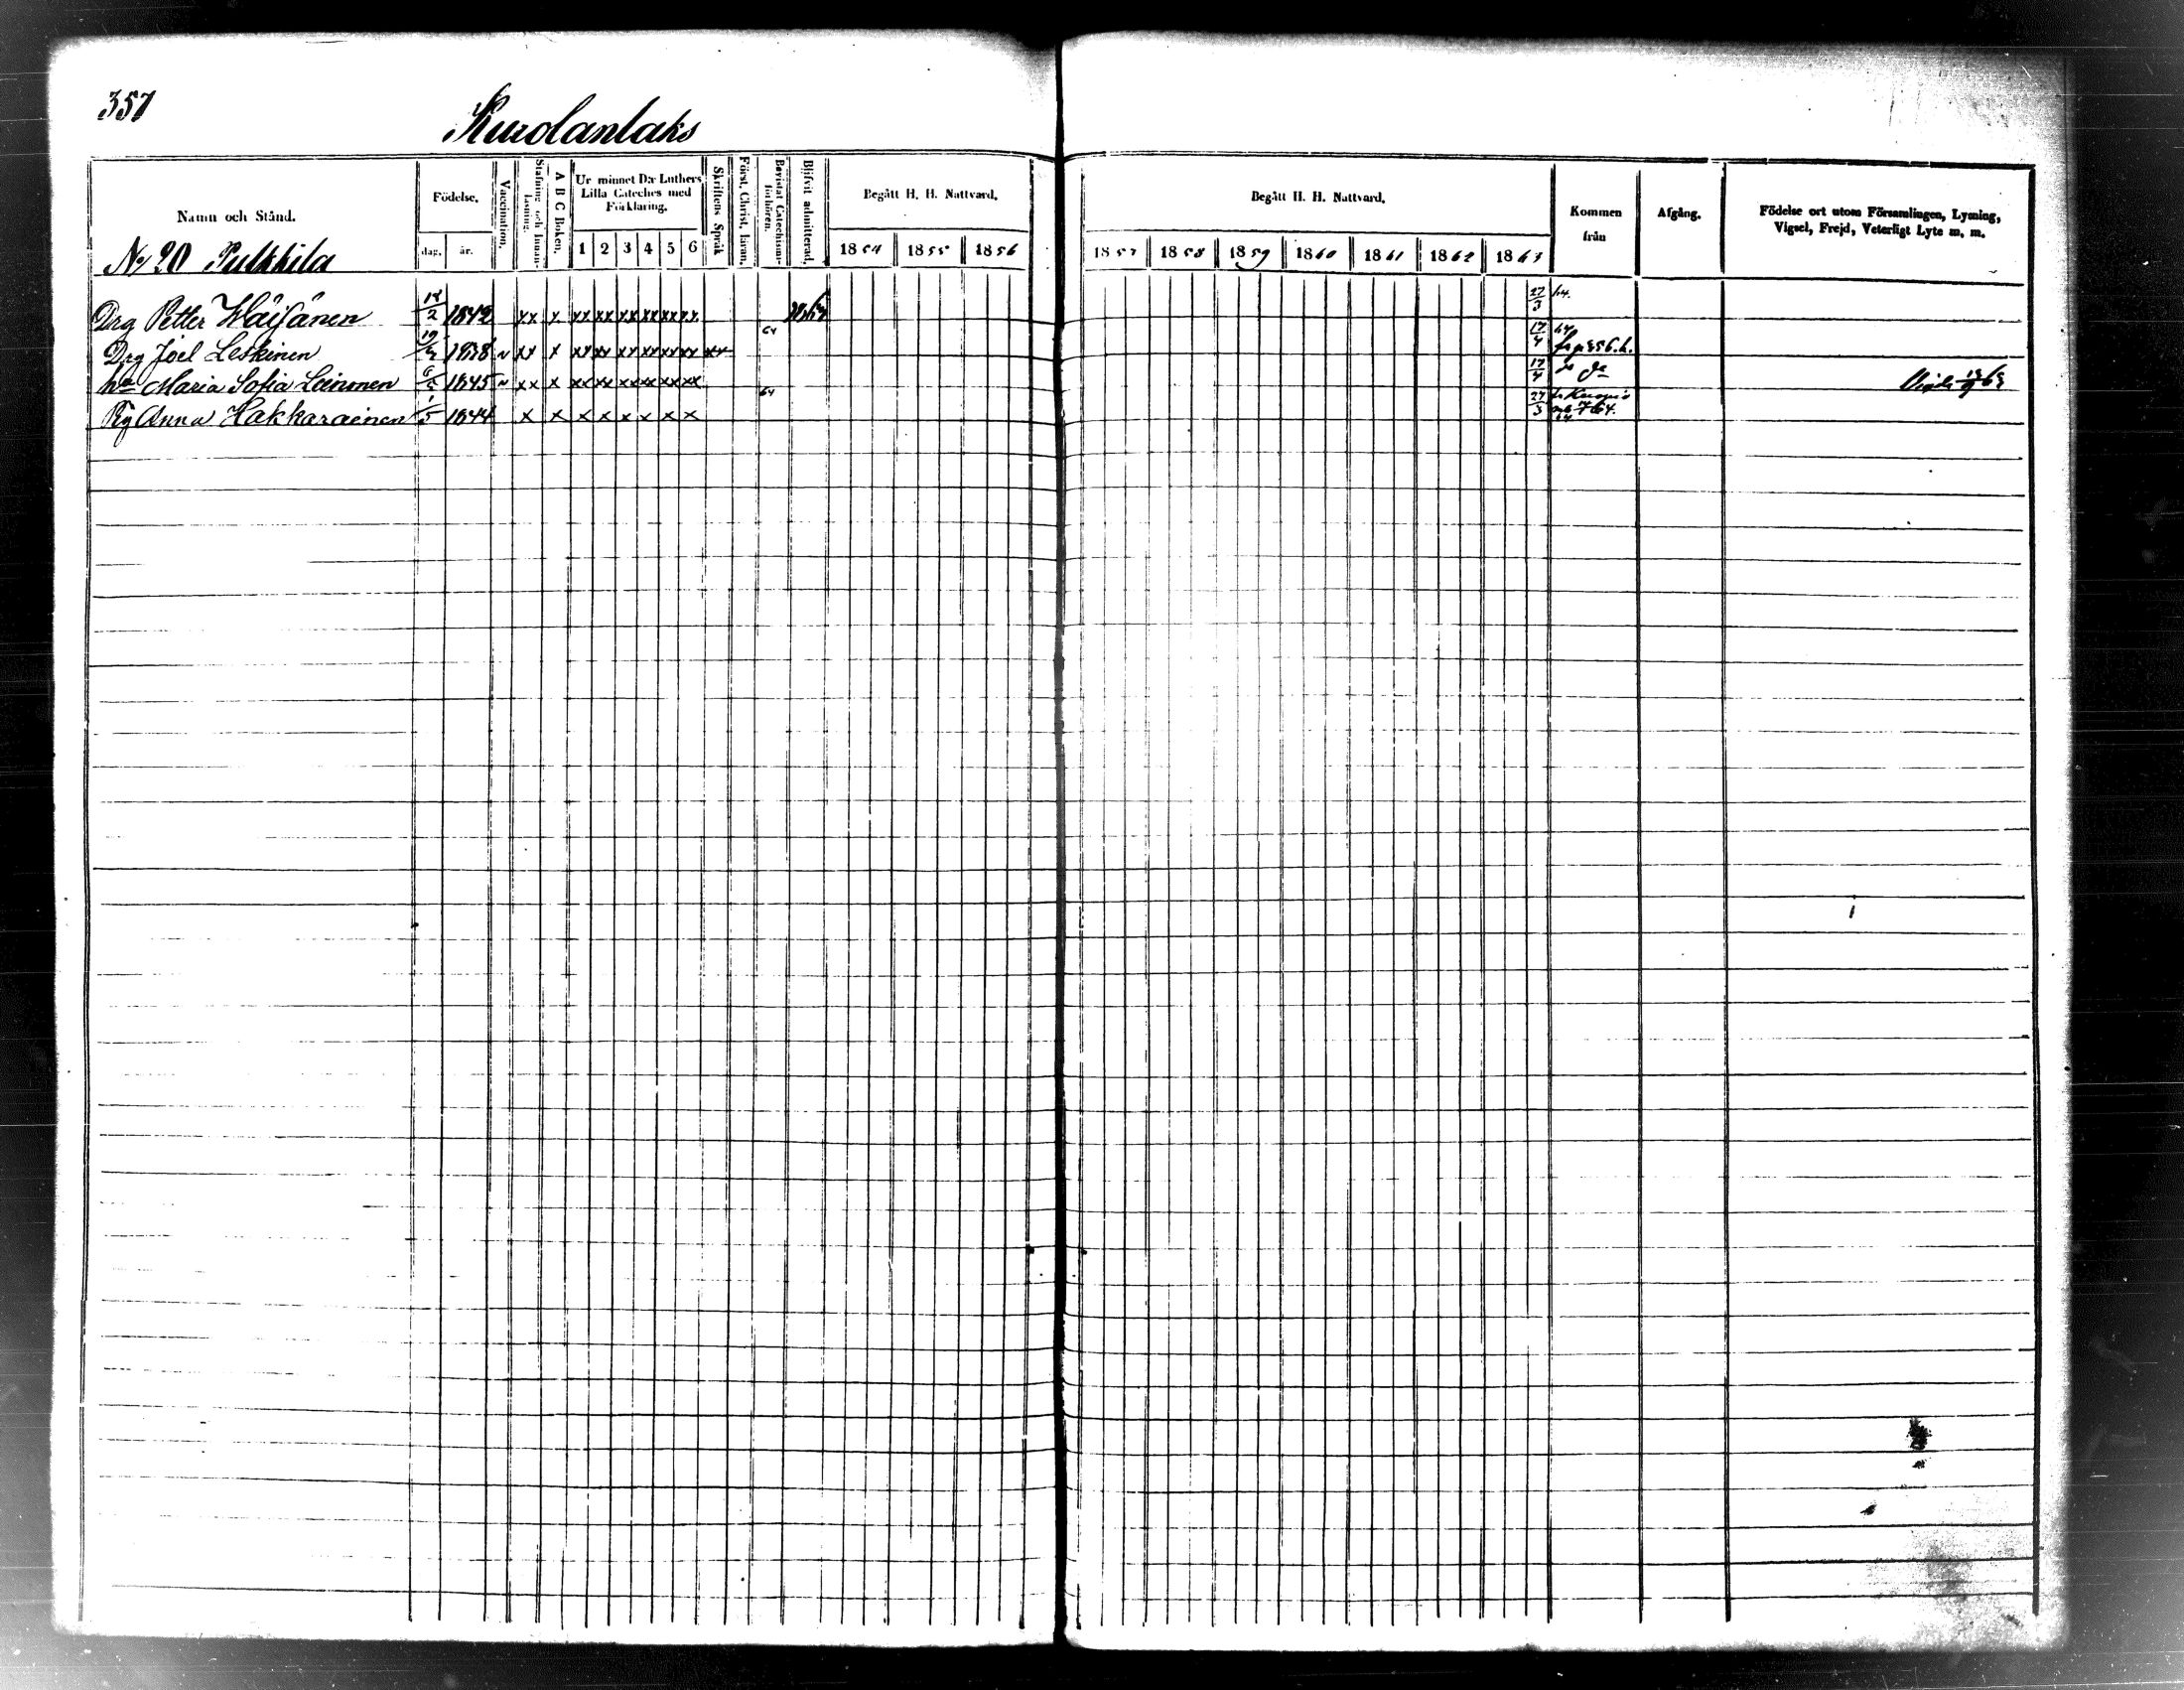 357
Kurolanlaks
Namn och Stånd.
Födelse.
dag. år.
Vaccination.
Stafning och Innanläsning.
A B C Boken.
Ur minnet D:r Luthers Lilla Cateches med Förklaring.
1 2 3 4 5 6
Skriftens Språk
Först. Christ. läran.
Bevistat Catechismiförhören.
Blifvit admitterad.
Begått H. H. Nattvard.
1854 1855 1856
Begått H. H. Nattvard.
1857 1858 1859 1860 1861 1862 1863
Kommen från
Afgång.
Födelse ort utom Församlingen, Lysning, Vigsel, Frejd, Veterligt Lyte m. m.
No 20 Pulkkila
Drg Petter Wäisänen 18/2 1842 xx x xx xx xx xx xx xx 27/3 64.
Drg Joel Leskinen 1838 xx x xx xx xx xx xx xx xx 64 17/4 64 fr p 356.h.
hu Maria Sofia Leinonen 1845 xx x xx xx xx xx xx xx 17/4
Pig Anna Hakkarainen 1/5 1844 x x x x x x x x 64 27/3 fr Kuopio